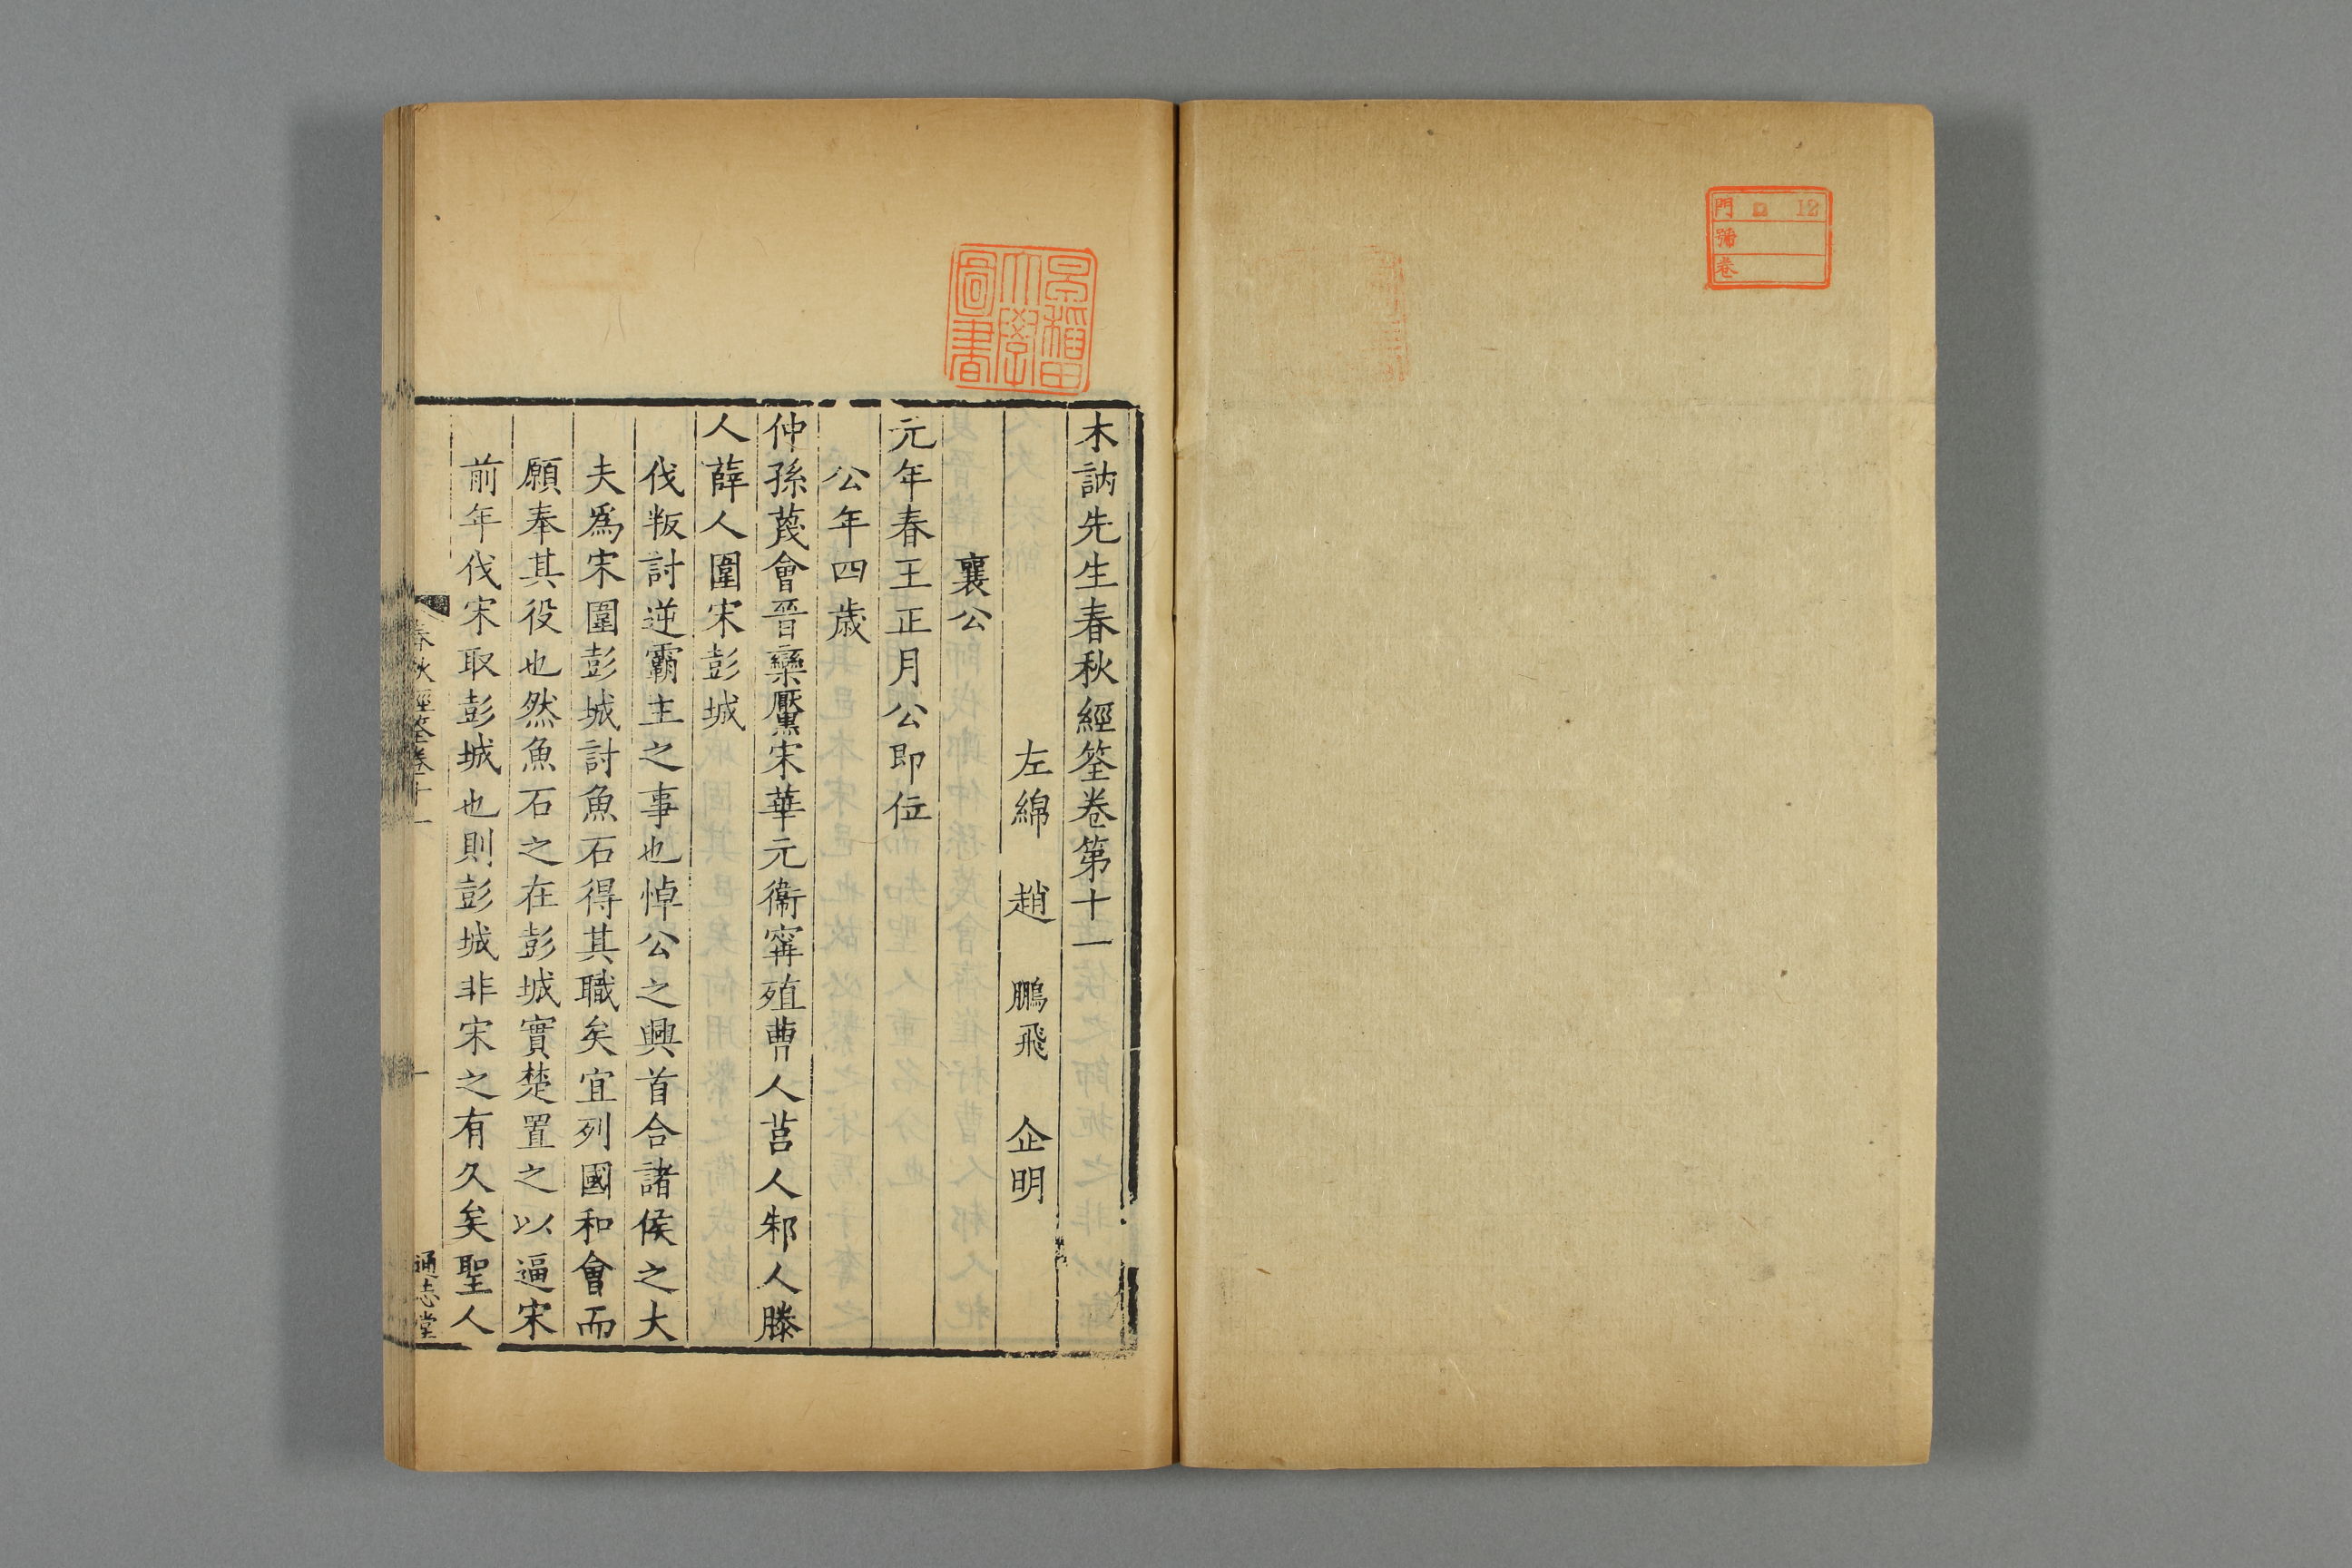 門 12
號
卷
早稲田
大學
圖書
木訥先生春秋經筌卷第十一
左綿 趙 鵬飛 企明
襄公
元年春王正月公即位
公年四歲
仲孫蔑會晉欒黶宋華元衞寗殖曹人莒人邾人滕
人薛人圍宋彭城
伐叛討逆霸主之事也悼公之興首合諸侯之大
夫爲宋圍彭城討魚石得其職矣宜列國和會而
願奉其役也然魚石之在彭城實楚置之以逼宋
前年伐宋取彭城也則彭城非宋之有久矣聖人
春秋經筌卷十一 一 通志堂